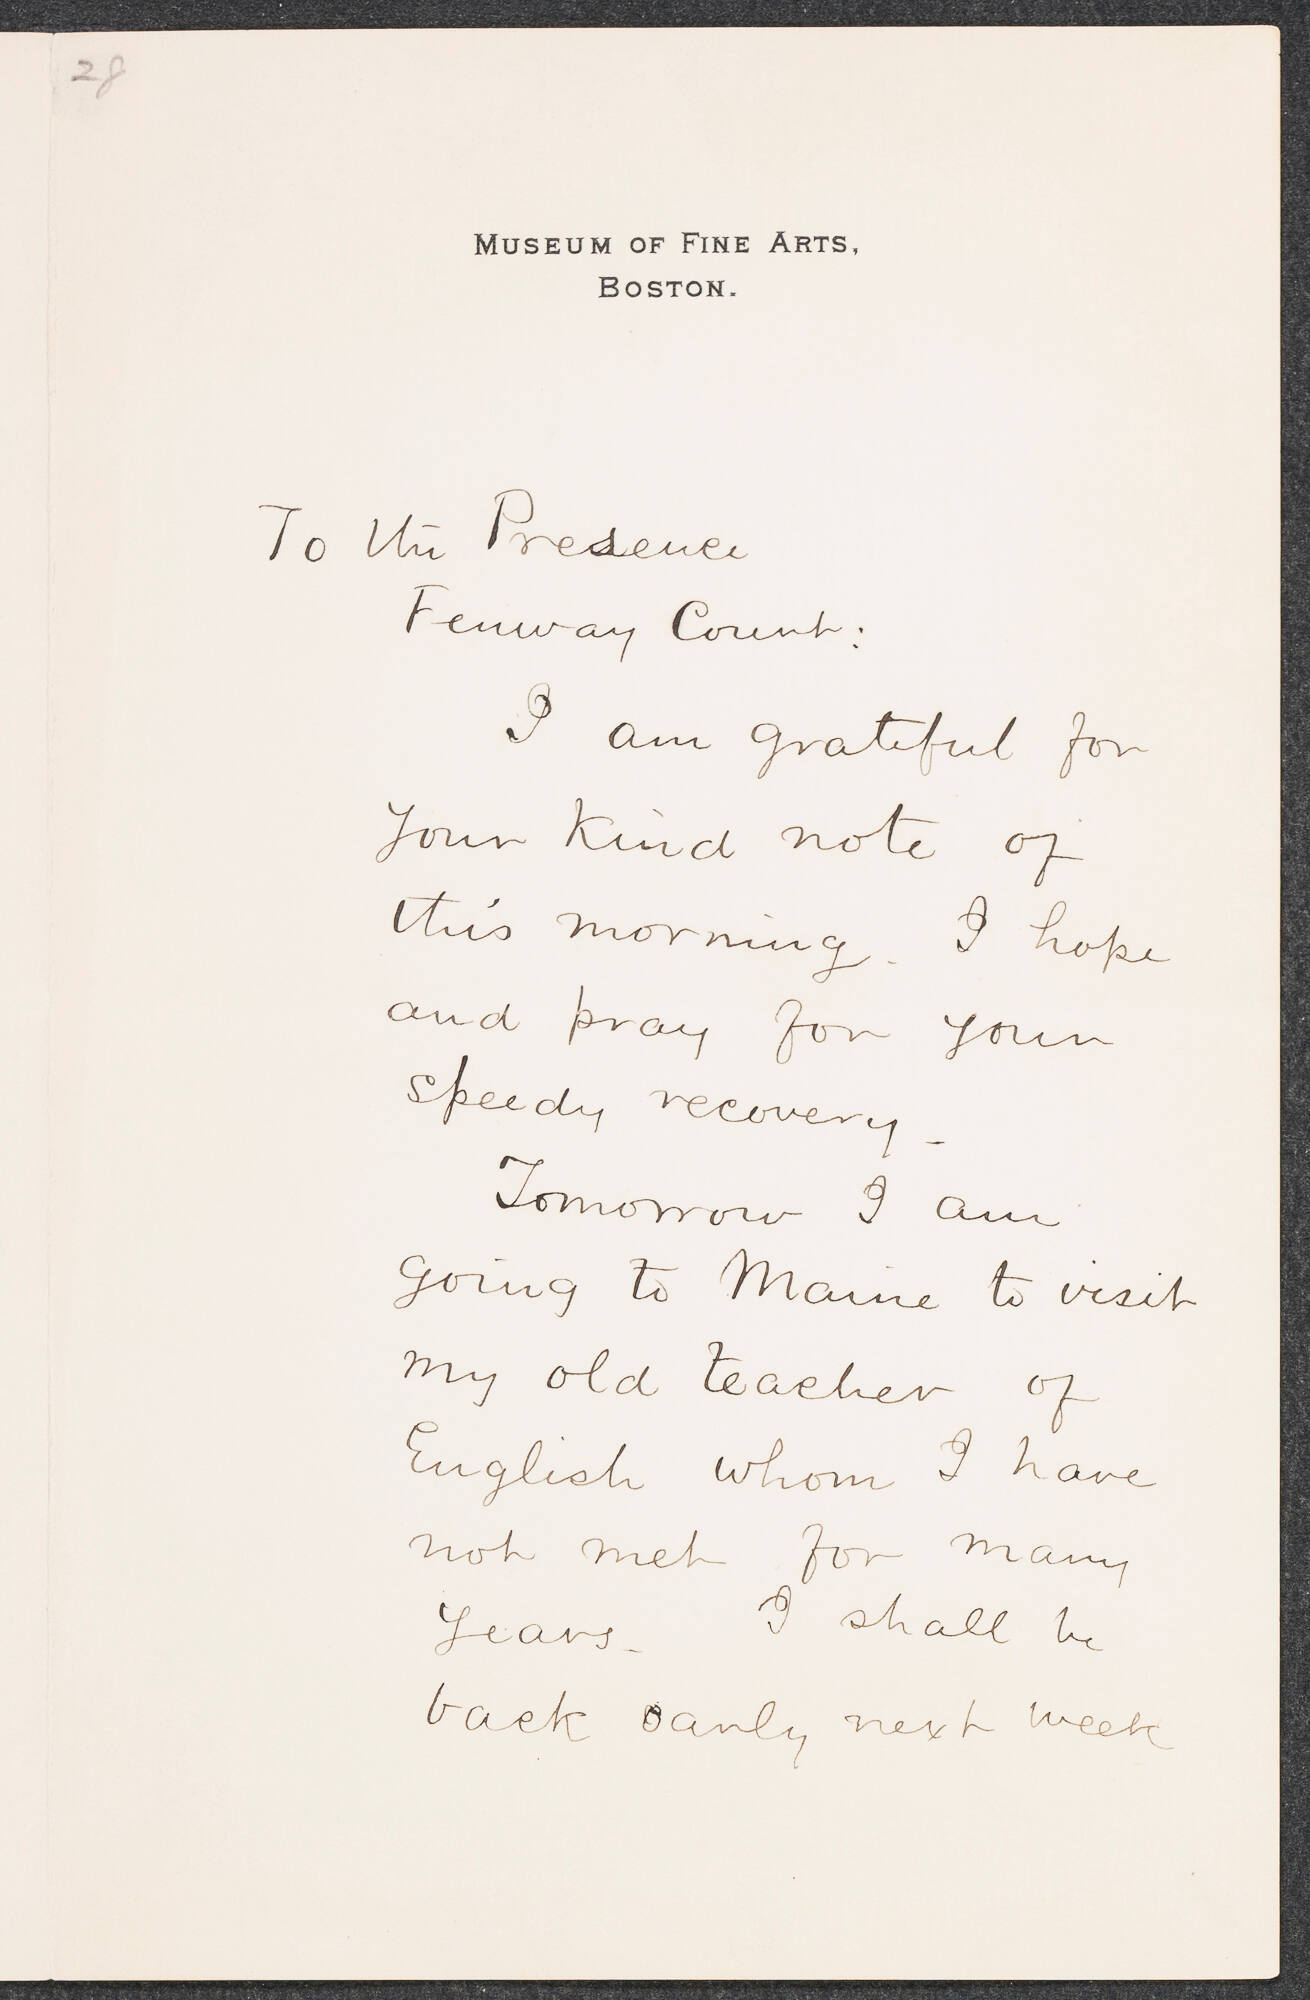 28
MUSEUM OF FINE ARTS,
BOSTON.
To the Presence
Fenway Court:
I am grateful for
your kind note of
this morning. I hope
and pray for your
speedy recovery.
Tomorrow I am
going to Maine to visit
my old teacher of
English whom I have
not met for many
years. I shall be
back early next week